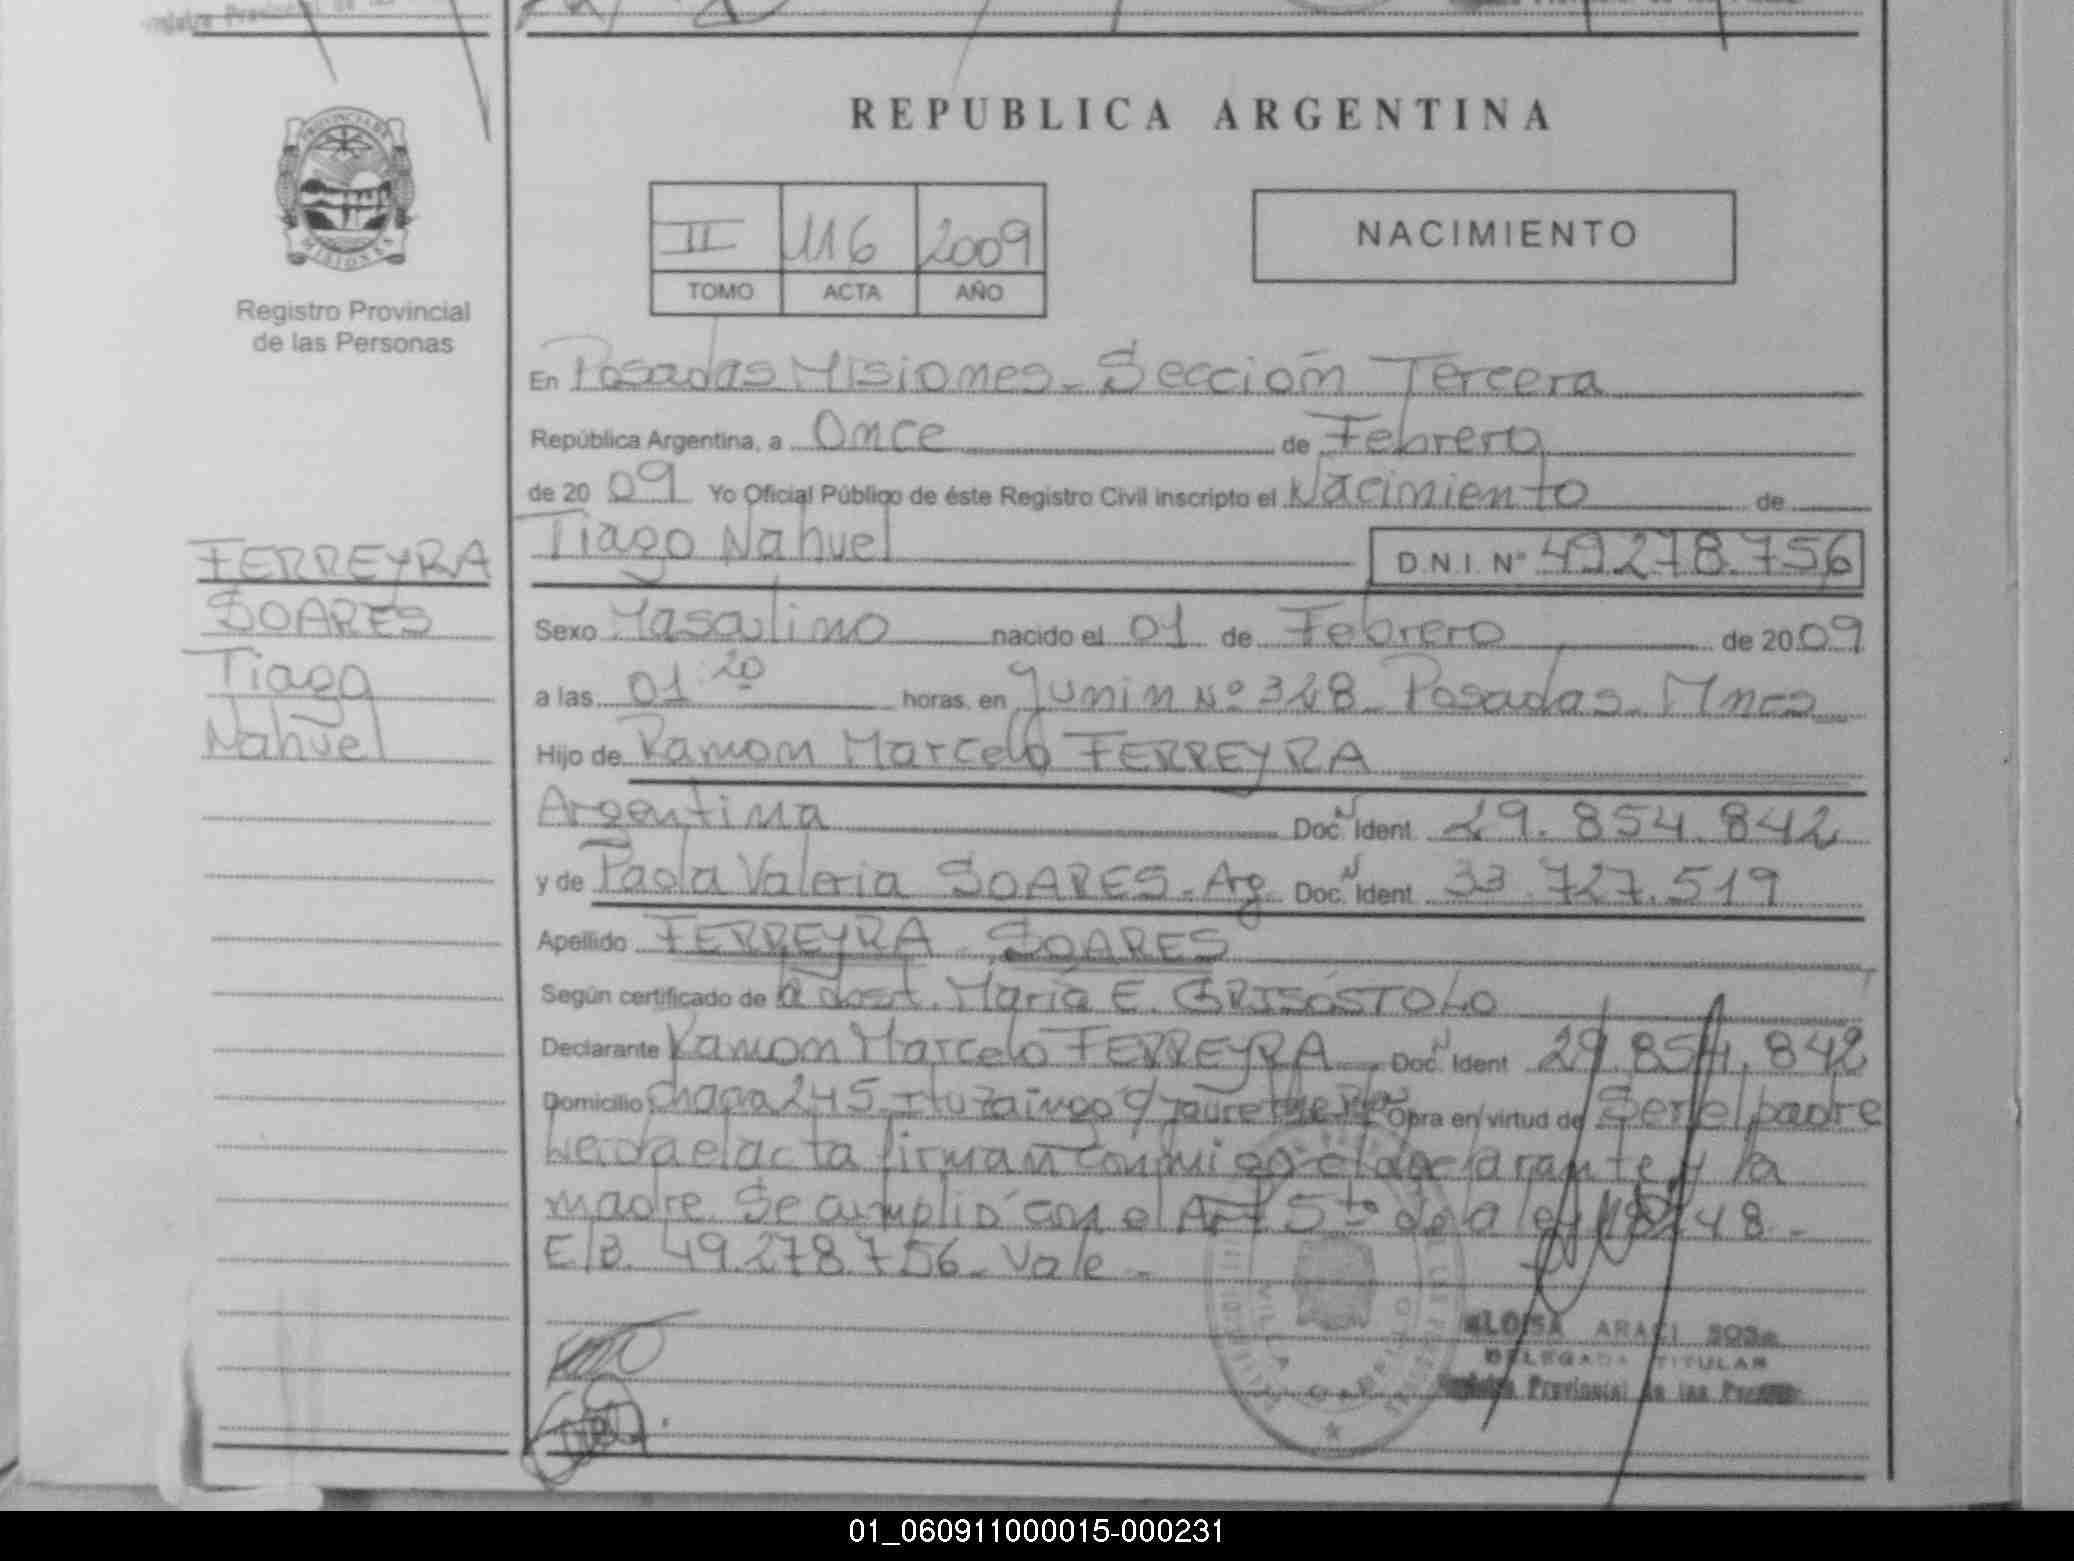 REPUBLICA ARGENTINA
PROVINCIA DE
MISIONES
Registro Provincial
de las Personas
II 116 2009
TOMO ACTA AÑO
NACIMIENTO
En Posadas Misiones - Sección Tercera
República Argentina, a Once de Febrero
de 2009 Yo Oficial Público de éste Registro Civil inscripto el Nacimiento de
Tiago Nahuel D.N.I. Nº 49.278.756
FERREYRA
SOARES
Tiago
Nahuel
Sexo Masculino nacido el 01 de Febrero de 2009
a las 01 20 horas, en Junin Nº 328 - Posadas - Mnes
Hijo de Ramon Marcelo FERREYRA
Argentina Doc. Ident. 29.854.842
y de Paola Valeria SOARES - Arg. Doc. Ident. 33.727.519
Apellido FERREYRA SOARES
Según certificado de María E. GRISÓSTOLO
Declarante Ramon Marcelo FERREYRA Doc. Ident. 29.854.842
Domicilio Chacra 245 - Ituzaingo Obra en virtud de Ser el padre
Leida el acta firman conmigo el declarante y la
madre. Se cumplió con el Art 5to de la ley 18248.-
E/B. 49.278.756 - Vale -
ARACI SOSA
DELEGADA TITULAR
Registro Provincial de las Personas
VILLA CABELLO
01_060911000015-000231